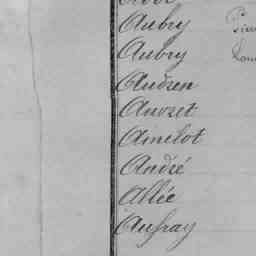 Aubry
Aubry
Audren
Auvset
Amelot
André
Allée
Auffray